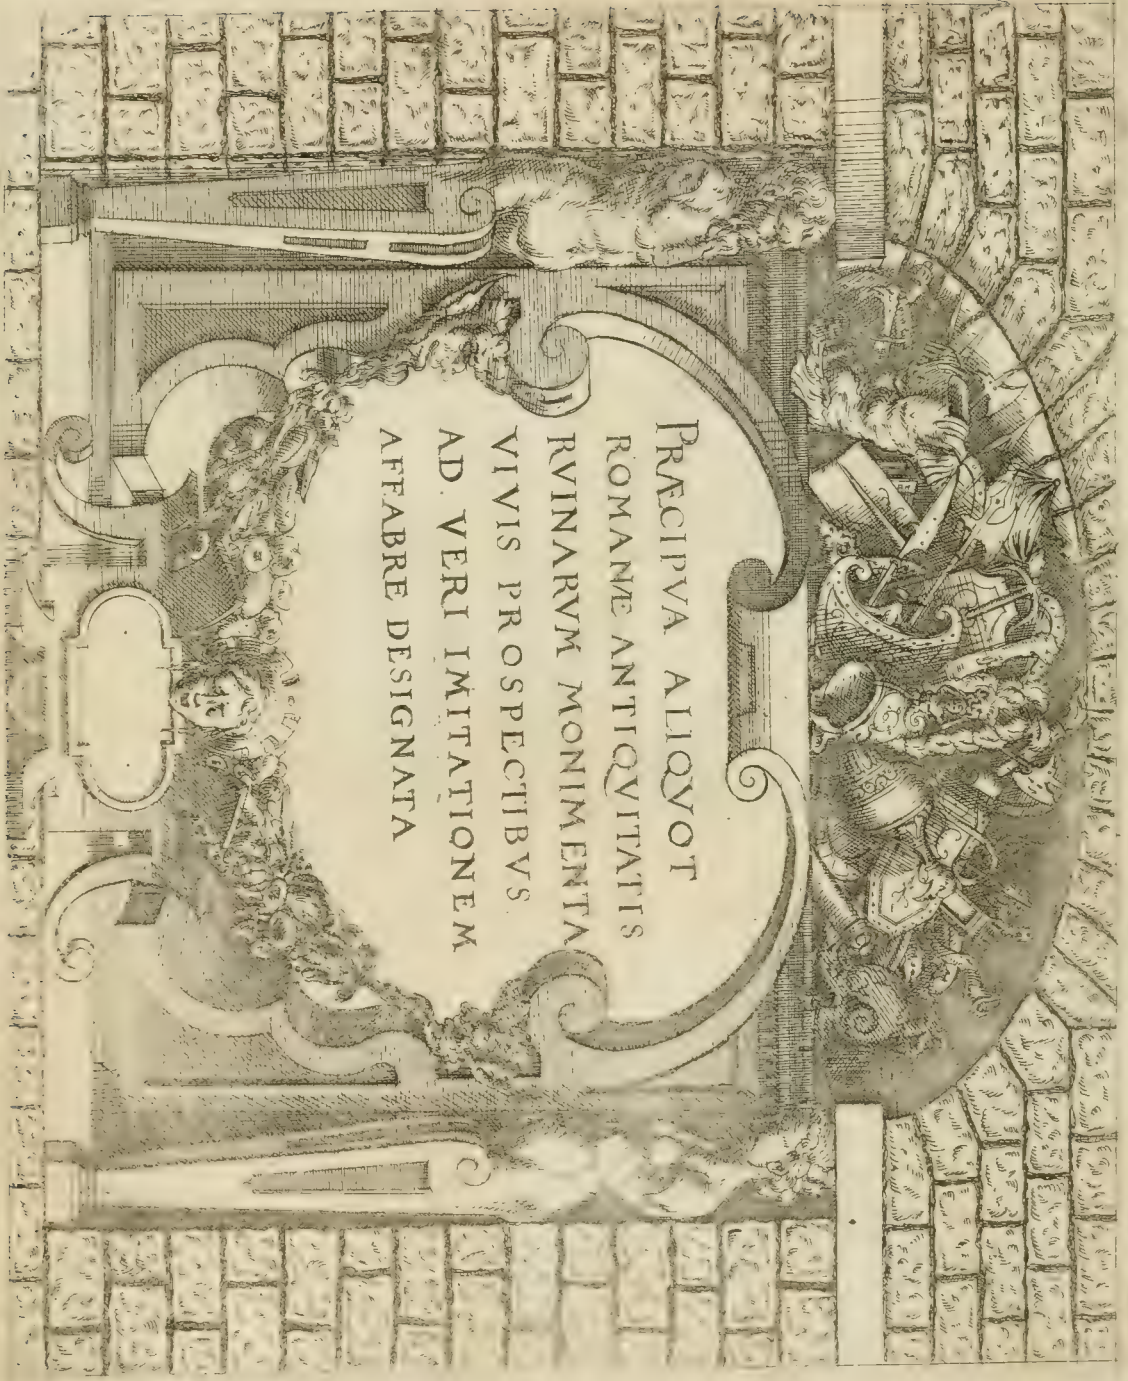 PRÆCIPVA ALIQVOT
ROMANÆ ANTIQVITATIS
RVINARVM MONIMENTA
VIVIS PROSPECTIBVS
AD VERI IMITATIONEM
AFFABRE DESIGNATA